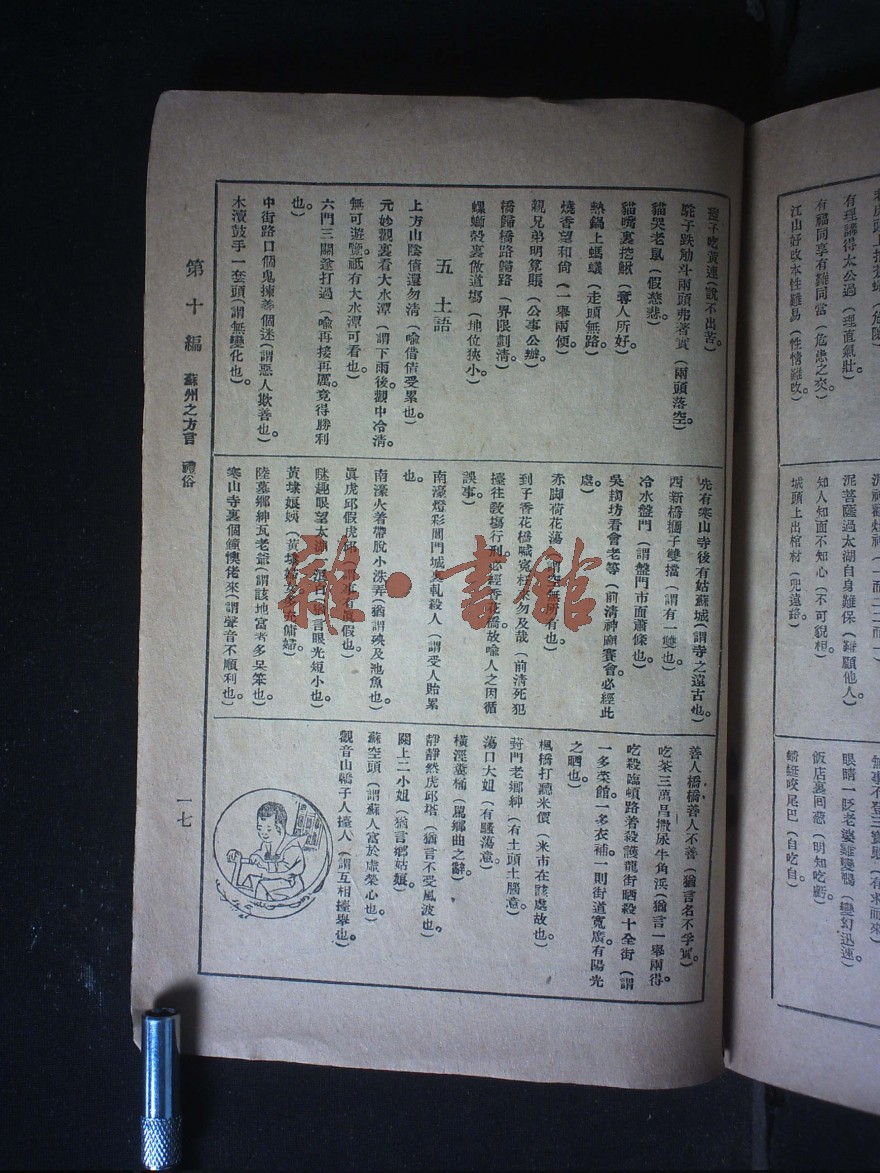 有理講得太公過（理直氣壯）
有福同享有難同當（危患之交）
江山好改本性難易（性情難改）
泥菩薩過太湖自身難保（難顧他人）
知人知面不知心（不可貌相）
城頭上出棺材（兜遠路）
無事不登三寶殿（有求而來）
眼睛一眨老婆雞變鴨（變幻迅速）
飯店裏回葱（明知吃虧）
蜻蜓咬尾巴（自吃自）
子吃黃連（說不出苦。）
駝子跌觔斗兩頭弗著實（兩頭落空。）
貓哭老鼠（假慈悲。）
貓嘴裏挖鰍（奪人所好。）
熱鍋上螞蟻（走頭無路。）
燒香望和尙（一舉兩便。）
親兄弟明算賬（公事公辦。）
橋歸橋路歸路（界限劃清。）
螺螄殼裏做道場（地位狹小。）
五 土語
上方山陰債還勿清（喩借債受累也。）
元妙觀裏看大水潭（謂下雨後觀中冷清。
無可遊覽。祇有大水潭可看也。）
六門三關塗打過（喩再接再厲。竟得勝利
也。）
中街路口個鬼揀善個迷（謂惡人欺善也。）
木瀆鼓手一套頭（謂無變化也。）
先有寒山寺後有姑蘇城（謂寺之遠古也。）
西新橋欄子雙擋（謂有一雙也。）
冷水盤門（謂盤門市面蕭條也。）
吳趨坊看會老等（前清神廟賽會。必經此
處。）
赤脚荷花蕩（謂空無所有也。）
到子香花橋喊寃枉來勿及哉（前清死犯
擡往敎場行刑。必經香花橋。故喩人之因循
誤事。）
南濠燈彩閶門城夾軋殺人（謂受人貽累
也。
南濠火着帶脫小洙弄（猶謂殃及池魚也。
眞虎邱假虎邱
黃埭娘姨（黃埭
陸墓鄉紳瓦老爺（謂該地富者多呆笨也。
寒山寺裏個鐘懊佬來（謂聲音不順利也。）
善人橋橋善人不善（猶言名不孚實。）
吃茶三萬昌撒尿牛角浜（猶言一舉兩得。
吃殺臨頓路着殺護龍街晒殺十全街（謂
一多菜館。一多衣補。一則街道寬廣。有陽光
之晒也。）
楓橋打聽米價（米市在該處故也。）
葑門老鄉紳（有土頭土腦意。）
蕩口大姐（有騷蕩意。）
橫涇糞桶（駡鄉曲之辭。）
靜靜然虎邱塔（猶言不受風波也。）
關上二小姐（猶言鄉姑娘。）
蘇空頭（謂蘇人富於虛榮心也。）
觀音山轎子人擡人（謂互相擡舉也。）
第十編 蘇州之方言 禮俗
一七
雜·書館